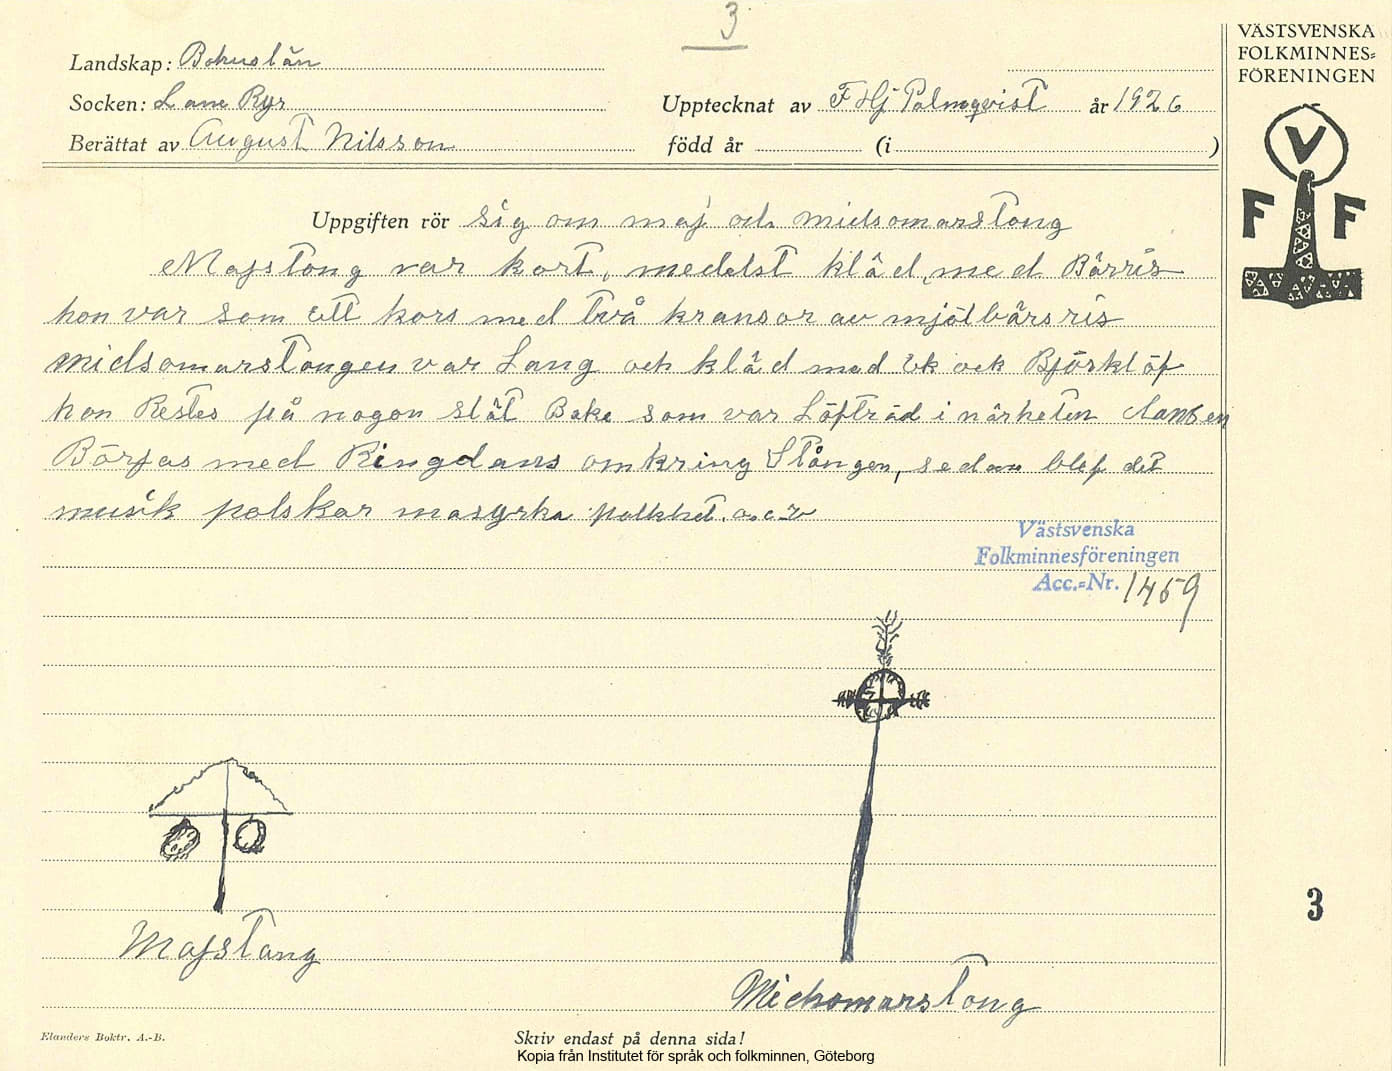 3
VÄSTSVENSKA
FOLKMINNES=
FÖRENINGEN
V
F F
Landskap: Bohuslän
Socken: Lane Ryr
Upptecknat av F Hj Palmqvist år 1926
Berättat av August Nilsson
född år (i )
Uppgiften rör sig om maj och midsomarstong
Majstong var kort, medelst kläd, med Bärris
hon var som ett kors med två kransor av mjölbärsris
midsomarstongen var Lang och kläd med Ek ock Björklöf
hon Restes på nogon slät Bake som var Löfträd i närheten dansen
Börjas med Ringdans omkring Stången, sedan blef det
musik polskor masyrka polkket. o.s.v
Västsvenska
Folkminnesföreningen
Acc.=Nr. 1459
3
Majstang
Midsomarstong
Elanders Boktr. A.-B.
Skriv endast på denna sida!
Kopia från Institutet för språk och folkminnen, Göteborg